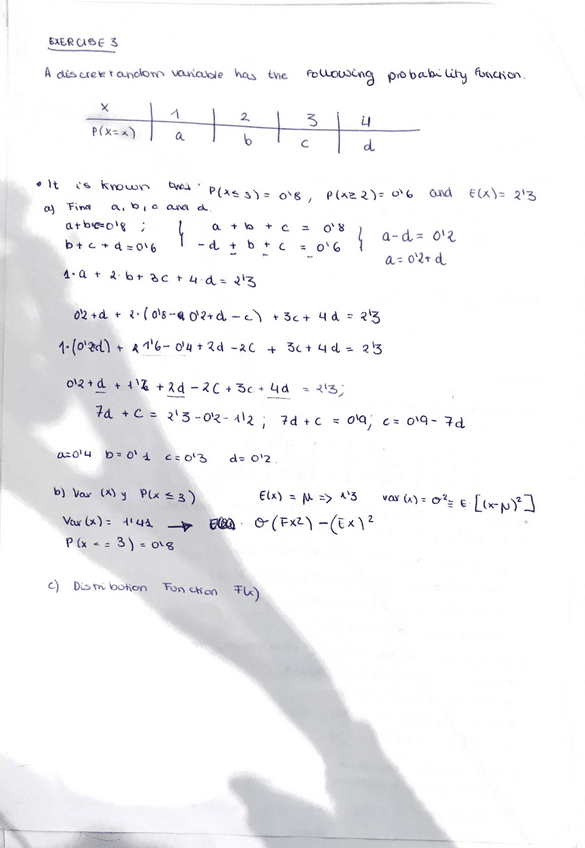 EXERCISE 3
A discrete random variable has the following probability function.
x | 1 | 2 | 3 | 4
P(X=x) | a | b | c | d
• It is known that P(x≤3) = 0'8, P(x≥2) = 0'6 and E(x) = 2'3
a) Find a, b, c and d.
a+b+c=0'8 ; a + b + c = 0'8 a-d = 0'2
b+c+d=0'6 -d + b + c = 0'6 a=0'2+d
1·a + 2·b + 3c + 4·d = 2'3
0'2+d + 2·(0'8- 0'2+d -c) + 3c + 4d = 2'3
+ 1'6-0'4+2d-2c + 3c+4d = 2'3
0'2+d + 1'2 +2d -2c+3c+4d = 2'3;
7d + c = 2'3-0'2-1'2 ; 7d+c = 0'9; c = 0'9-7d
a=0'4 b=0'1 c=0'3 d=0'2.
b) Var (x) y P(x≤3) E(x) = μ => 2'3 var(x) = σ²= E [(x-μ)²]
Var(x) = 1'41 → (Ex2) - (Ex)²
P(x<=3) = 0'8
c) Distribution Function F(x)